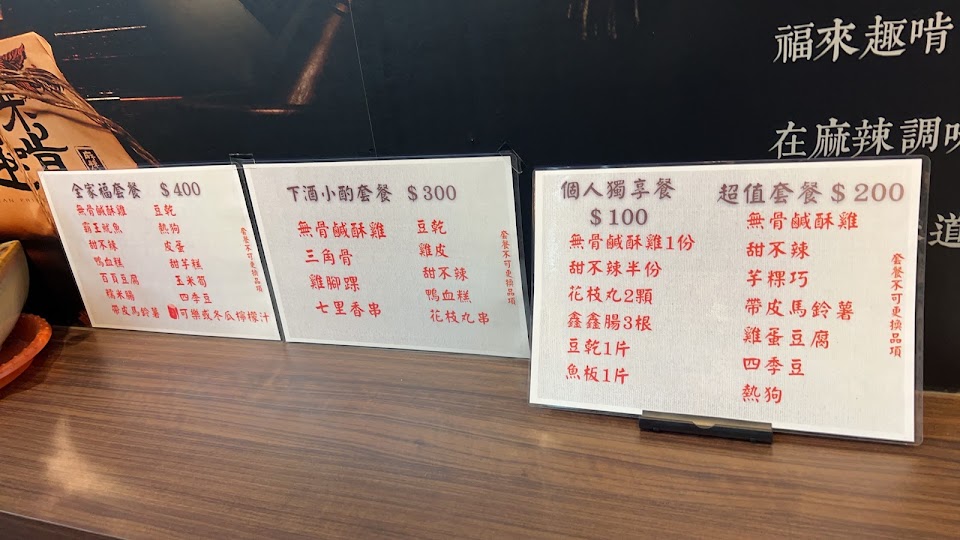 福來趣啃
在麻辣調味
道
全家福套餐 $400
無骨鹹酥雞 豆乾
霸王魷魚 熱狗
甜不辣 皮蛋
鴨血糕 甜芋糕
百頁豆腐 玉米筍
糯米腸 四季豆
帶皮馬鈴薯 可樂或冬瓜檸檬汁
套餐不可更換品項
下酒小酌套餐 $300
無骨鹹酥雞 豆乾
三角骨 雞皮
雞腳踝 甜不辣
七里香串 鴨血糕
花枝丸串
套餐不可更換品項
個人獨享餐
$100
無骨鹹酥雞1份
甜不辣半份
花枝丸2顆
鑫鑫腸3根
豆乾1片
魚板1片
超值套餐 $200
無骨鹹酥雞
甜不辣
芋粿巧
帶皮馬鈴薯
雞蛋豆腐
四季豆
熱狗
套餐不可更換品項